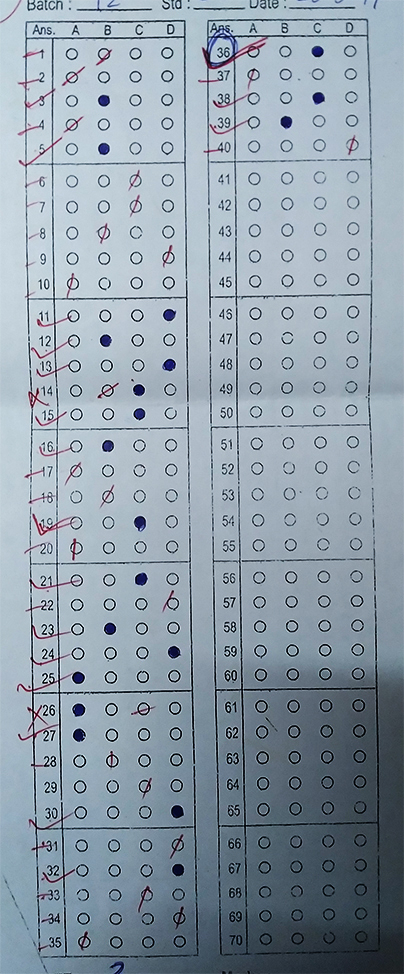 Batch : 12 Std : Date :
Ans. A B C D
1
2
3
4
5
6
7
8
9
10
11
12
13
14
15
16
17
18
19
20
21
22
23
24
25
26
27
28
29
30
31
32
33
34
35
Ans. A B C D
36
37
38
39
40
41
42
43
44
45
46
47
48
49
50
51
52
53
54
55
56
57
58
59
60
61
62
63
64
65
66
67
68
69
70